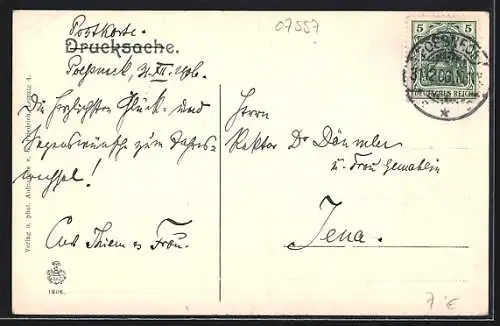 07557
Postkarte.
Drucksache.
Poessneck, 31. XII. 1906.
Die herzlichsten Glück- und
Segenswünsche zum Jahres-
wechsel!
Curt Thiem u Frau.
Herrn
Rektor Dr Däumler
u. Frau Gemahlin
Jena.
5 5
DEUTSCHES REICH
Verlag u. phot. Aufnahme v.
1906.
7 €